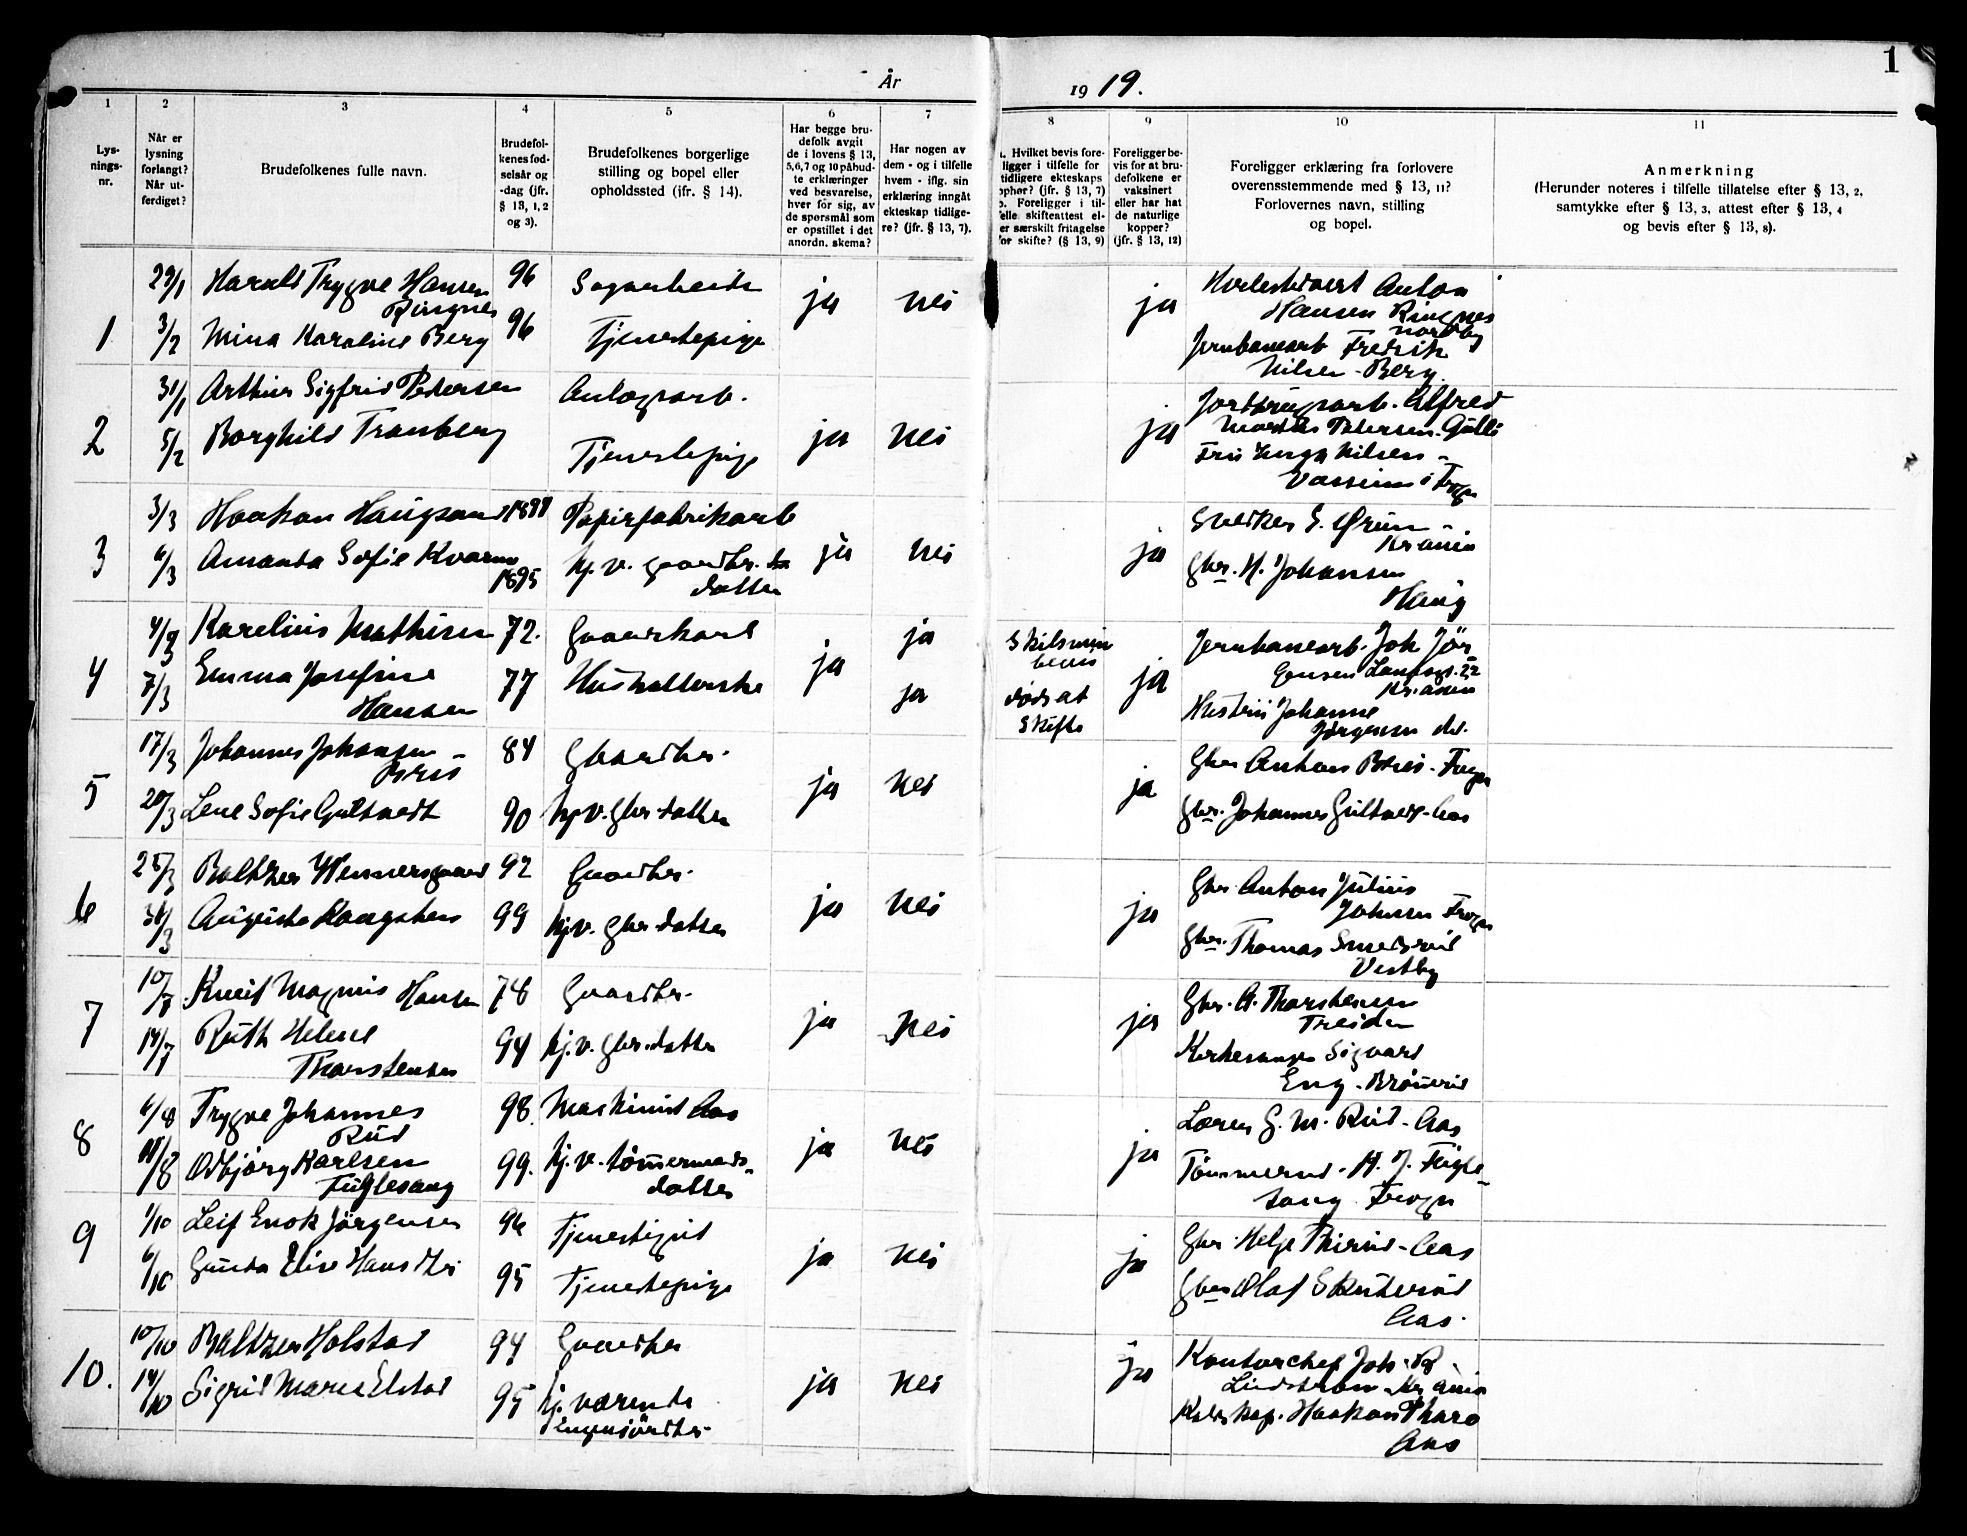 1
År
19 19.
1 2 3 4 5 6 7 8 9 10 11
Lys-
nings-
nr.
Når er
lysning
forlangt?
Når ut-
ferdiget?
Brudefolkenes fulle navn.
Brudefol-
kenes fød-
selsår og
-dag (jfr.
§ 13, 1, 2
og 3).
Brudefolkenes borgerlige
stilling og bopel eller
opholdssted (ifr. § 14).
Har begge bru-
defolk avgit
de i lovens § 13,
5,6,7 og 10 påbud-
te erklæringer
ved besvarelse,
hver for sig, av
de spørsmål som
er opstillet i det
anordn. skema?
Har nogen av
dem - og i tilfelle
hvem - iflg. sin
erklæring inngåt
ekteskap tidlige-
re? (jfr. § 13, 7).
Hvilket bevis fore-
ligger i tilfelle for
tidligere ekteskaps
ophør? (jfr. § 13, 7)
Foreligger i til-
felle skifteattest el-
er særskilt fritagelse
for skifte? (§ 13, 9)
Foreligger be-
vis for at bru-
defolkene er
vaksinert
eller har hat
de naturlige
kopper?
(jfr. § 13, 12)
Foreligger erklæring fra forlovere
overensstemmende med § 13, 11?
Forlovernes navn, stilling
og bopel.
Anmerkning
(Herunder noteres i tilfelle tillatelse efter § 13, 2,
samtykke efter § 13, 3, attest efter § 13, 4
og bevis efter § 13, 8).
1 29/1 Harald Trygve Hansen 96 Sagarbeider ja nei ja Anton
Ringnes Hansen Ringnes
Nordby
3/2 Mina Karoline Berg 96 Tjenestepige Jernbanearb Fredrik
Nilsen - Berg
2 31/1 Arthur Sigfrid Petersen Anlægsarb. ja nei ja Alfred
Petersen
5/2 Borghild Tranberg Tjenestepige Fru Nilsen -
i Frogn
3 3/3 Haakon 1891 Papirfabrikarb ja nei ja
Kr.ania
6/3 Amanda Sofie 1895 hj.v. gaardbr. Gbr. H. Johansen
datter Haug
4 4/3 Karelius Mathisen 72. Gaardskarl ja ja Skilsmisse ja Jernbanearb. Joh Jör
bevis gensen
Kr.ania
7/3 Emma Josefine 77 Husholderske ja dødsat Hustru Johanne
Hansen skifte Jørgensen do.
5 17/3 Johannes Johansen 84 Gaardbr. ja nei ja Gbr Anton - Frogn
20/3 Lene Sofie Gultvedt 90 hj.v. Gbr. datter Gbr. Johannes Gultvedt - Aas
6 Baltzer Wennersgaard 92 Gaardbr. ja nei ja Gbr. Anton Julius
Johansen Frogn
Augusta Kongsten 99 hj.v. Gbr. datter Gbr. Thomas
Vestby
7 10/7 Knut Magnus Hansen 78 Gaardbr. ja nei ja Gbr. A. Thorstensen
Treider
14/7 Ruth Helene 94 hj.v. Gbr. datter Kirkesanger Sigvard
Thorstensen Eng -
8 6/8 Trygve Johannes 98. Maskinist Aas ja nei ja G. M. Rud - Aas
Rud
11/8 Odbjörg Karlsen 99. hj.v. tömermands- Tömmermd. H. J. Fugle-
Fuglesang datter sang Frogn
9 1/10 Leif Enok Jörgensen 96 Tjenestegut ja nei ja Gbr. Helge - Aas
6/10 Gunda Elise 95 Tjenestepige Gbr Olaf Skuterud
Aas.
10. 10/10 Baltzer Holstad 94 Gaardbr ja nei ja Kontorchef Joh. R.
Lindstrøm Kr.ania
14/10 Sigrid Marie Elstad 95 hj. værende Haakon Tharo
Aas